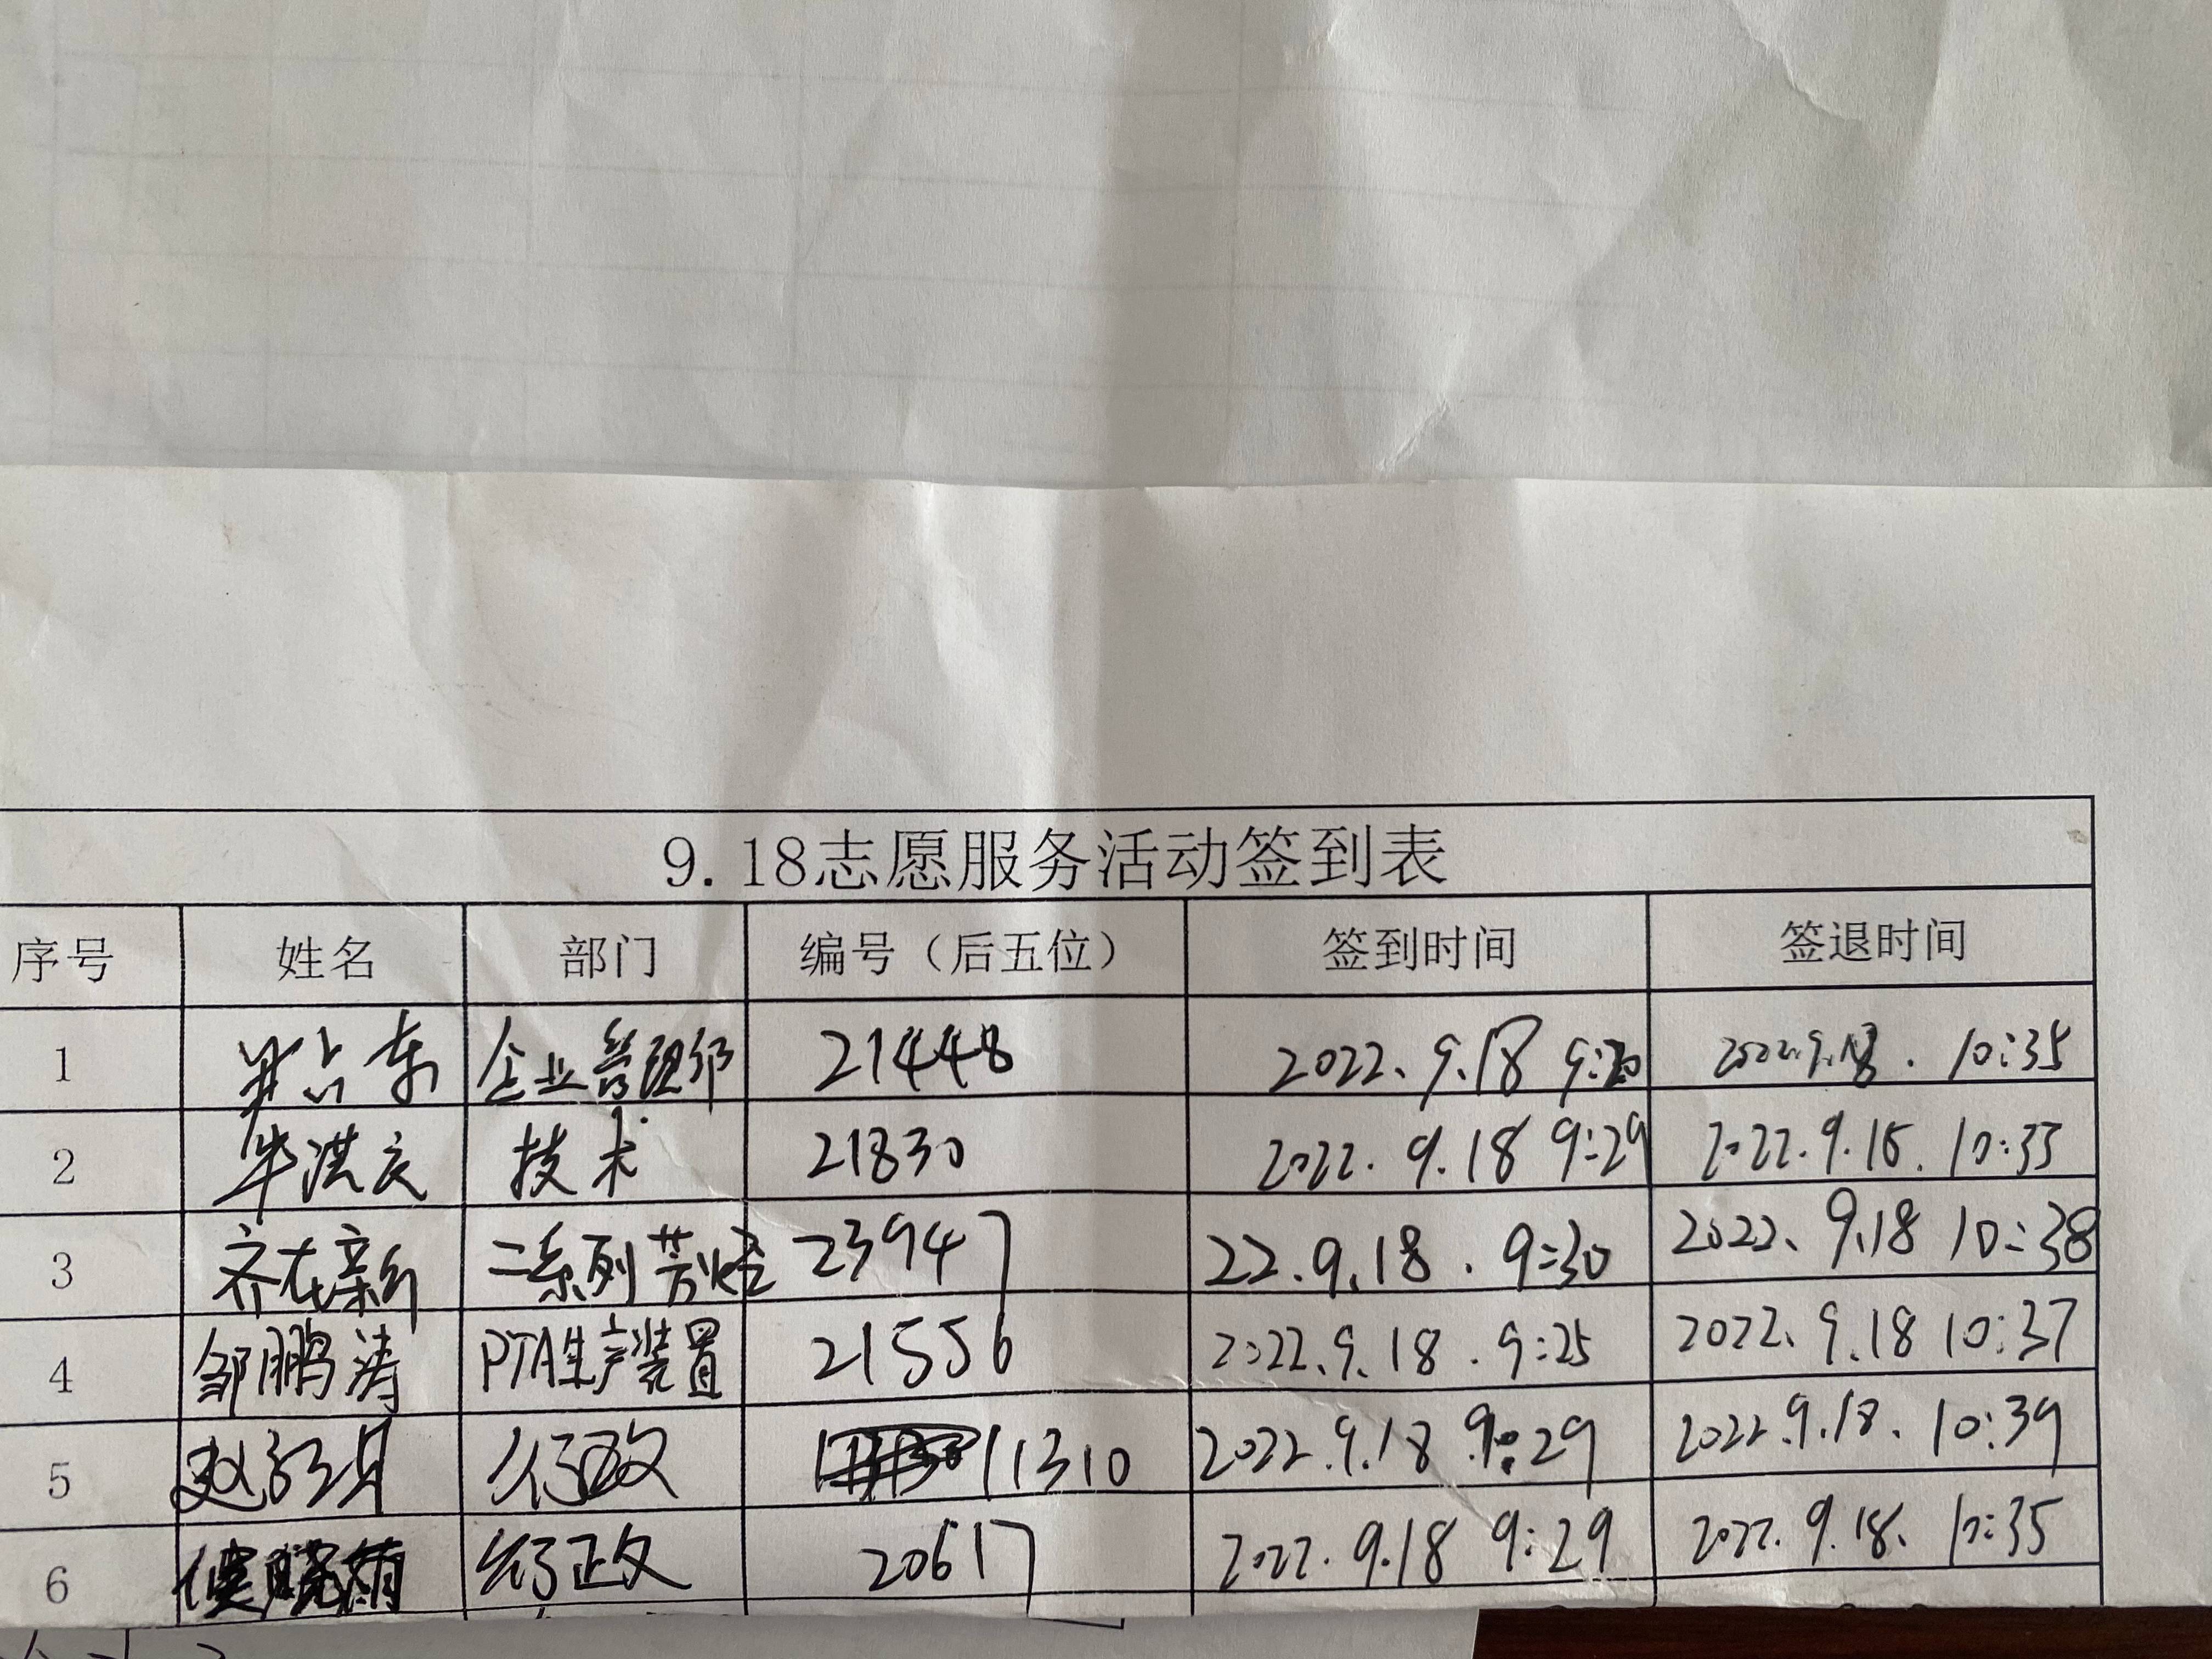 9.18志愿服务活动签到表
序号 姓名 部门 编号（后五位） 签到时间 签退时间
1 企业管理部 21448 2022.9.18 9:20 2022.9.18. 10:35
2 华洪庆 技术 21830 2022.9.18 9:29 2022.9.18. 10:35
3 齐在新 二系列芳烃 23947 22.9.18. 9:30 2022.9.18 10:38
4 邹鹏涛 PTA生产装置 21556 2022.9.18. 9:25 2022.9.18 10:37
5 行政 11310 2022.9.18 9:29 2022.9.18. 10:39
6 行政 20617 2022.9.18 9:29 2022.9.18. 10:35